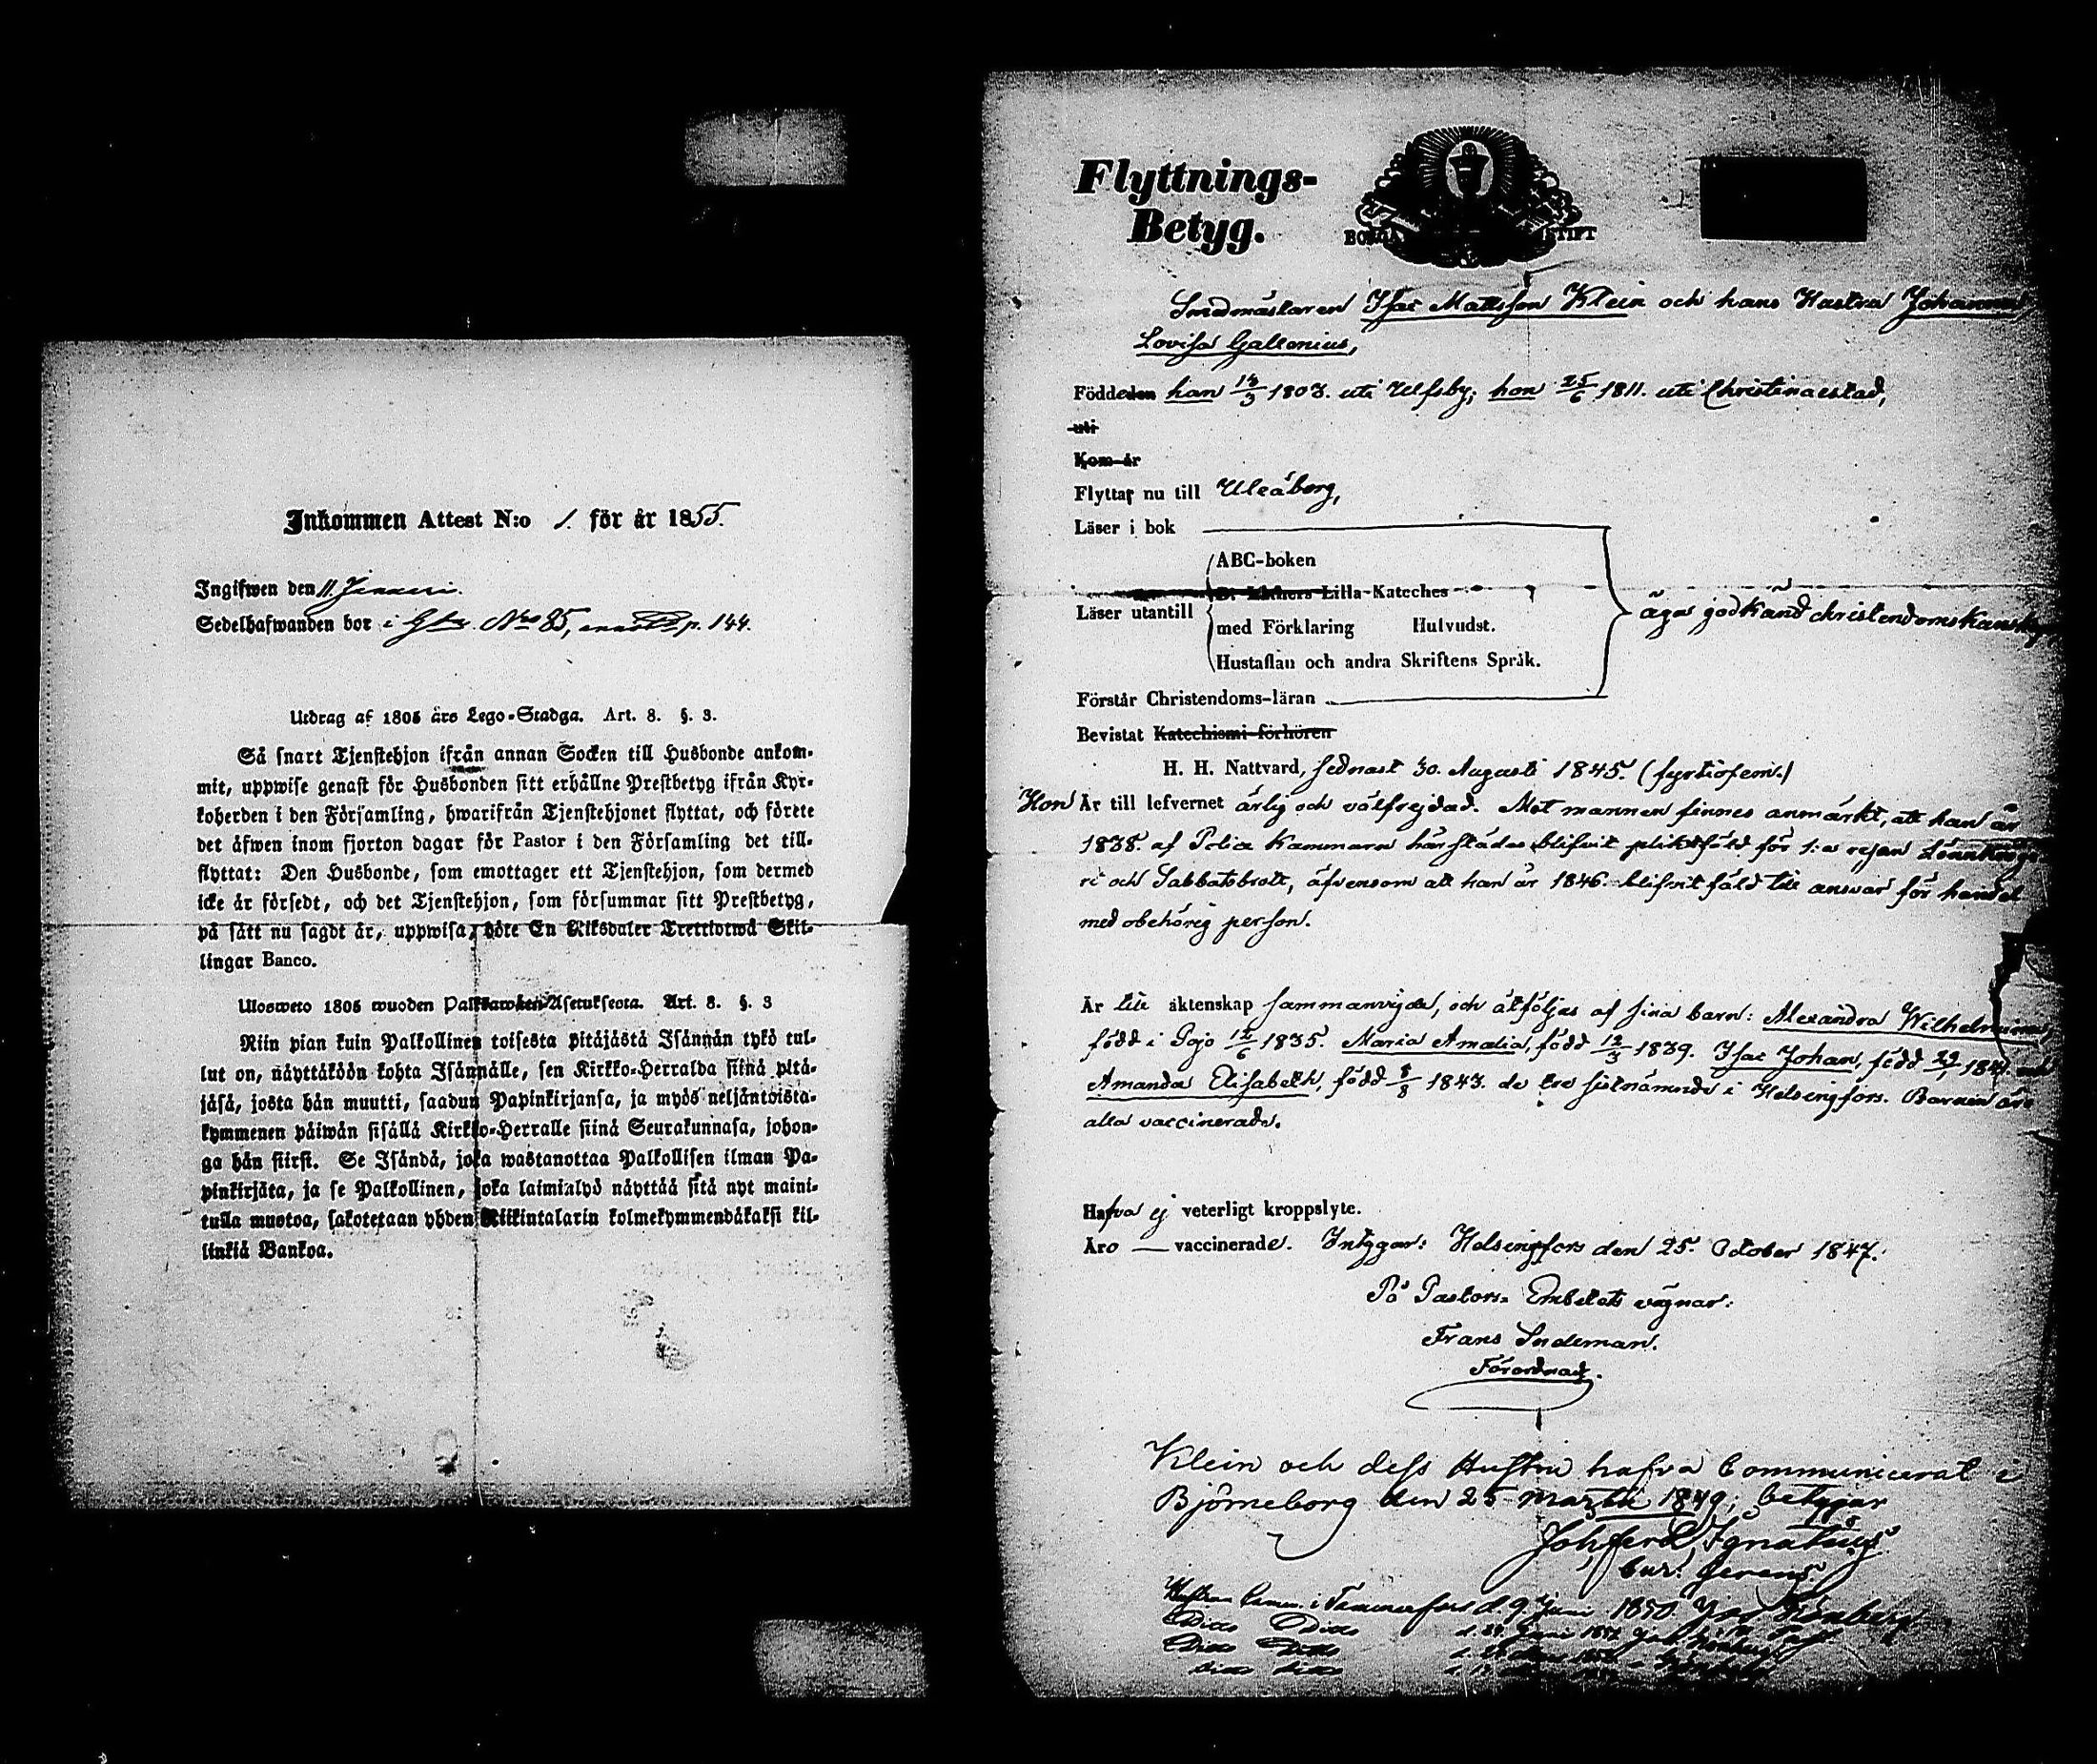 Inkommen Attest N:o 1. för år 1855.
Ingifwen den 11. Januari.
Sedelhafwanden bor i Gården Nro 85, p. 144.
Utdrag af 1805 års Lego-Stadga. Art. 8. §. 3.
Så snart Tjenstehjon ifrån annan Socken till Husbonde ankom-
mit, uppwise genast för Husbonden sitt erhållne Prestbetyg ifrån Kyr-
koherden i den Församling, hwarifrån Tjenstehjonet flyttat, och förete
det äfwen inom fjorton dagar för Pastor i den Församling det till-
flyttat: Den Husbonde, som emottager ett Tjenstehjon, som dermed
icke är försedt, och det Tjenstehjon, som försummar sitt Prestbetyg,
på sätt nu sagdt är, uppwisa, böte En Riksdaler Trettiotwå Skil-
lingar Banco.
Ulosweto 1805 wuoden Palkkawäen Asetuksesta. Art. 8. §. 3
Niin pian kuin Palkollinen toisesta pitäjästä Isännän tykö tul-
lut on, näyttäköön kohta Isännälle, sen Kirkko-Herralda siinä pitä-
jäsä, josta hän muutti, saadun Papinkirjansa, ja myös neljäntoista-
kymmenen päiwän sisällä Kirkko-Herralle siinä Seurakunnasa, johon-
ga hän siirsi. Se Isändä, joka wastanottaa Palkollisen ilman Pa-
pinkirjata, ja se Palkollinen, joka laiminlyö näyttää sitä nyt maini-
tulla muotoa, sakotetaan yhden Riikintalarin kolmekymmendäkaksi kil-
linkiä Bankoa.
Flyttnings-
Betyg.
BORGÅ STIFT
Smedmästaren Isac Mattsson Klein och hans Hustru Johanna
Lovisa Gallenius,
Föddeden han 14/3 1803. uti Ulfsby; hon 25/6 1811. uti Christinæstad,
uti
Kom år
Flyttar nu till Uleåborg,
Läser i bok
ABC-boken
D. Luthers Lilla-Kateches
Läser utantill
med Förklaring Hulvudst.
Hustaflan och andra Skriftens Språk.
äga godkänd christendomskunskap
Förstår Christendoms-läran
Bevistat Katechismi-förhören
H. H. Nattvard, sednast 30. Augusti 1845. (fyrtiofem.)
Hon Är till lefvernet ärlig och välfrejdad. Mot mannen finnes anmärkt, att han år
1838. af Police Kammaren härstädes blifvit pliktfäld för 1:a resan Lönnkröge
ri och Sabbatsbrott, äfvensom att han år 1846. blifvit fäld till ansvar för handel
med obehörig person.
Är till äktenskap sammanvigde, och åtföljas af sina barn: Alexandra Wilhelmina,
född i Pojo 12/6 1835. Maria Amalia, född 12/3 1839. Isac Johan, född 29/1 1841. och
Amanda Elisabeth, född 8/8 1843. de tre sistnämnde i Helsingfors. Barnen äro
alla vaccinerade.
Hafva ej veterligt kroppslyte.
Äro — vaccinerade. Intygar: Helsingfors den 25. October 1847.
På Pastors-Embetets vägnar:
Frans Indeman.
Förordnad.
Klein och dess Hustru hafva Communicerat i
Björneborg den 25 Martii 1849; betygar
Joh ferd Ignatius
Cur. gerens.
Hustrun Comm. i Tammerfors d. 9 Juni 1850.
Ditto Ditto
Ditto Ditto
Ditto Ditto